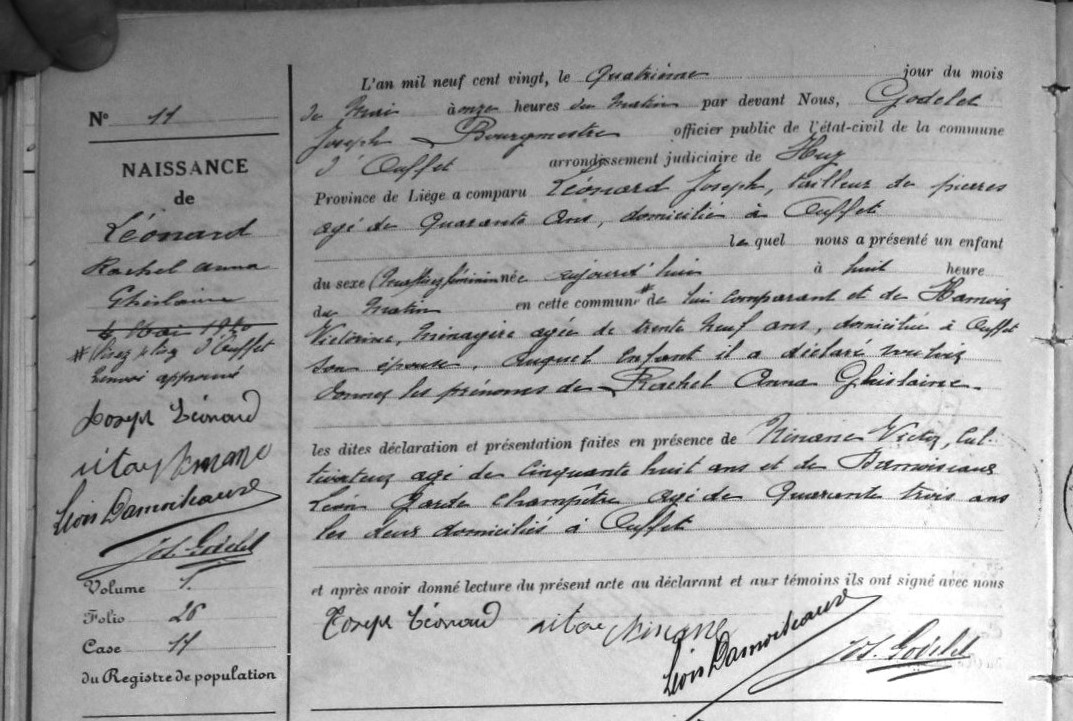 N° 11
NAISSANCE
de
Léonard
Rachel Anna
Ghislaine
4 Mai 1920
d'Ouffet
Renvoi approuvé
Joseph Léonard
Victor Ninane
Léon Damoiseaux
Jos. Godelet
Volume 1.
Folio 26
Case 11
du Registre de population
L'an mil neuf cent vingt, le Quatrième jour du mois
de Mai à onze heures du Matin par devant Nous, Godelet
Joseph Bourgmestre officier public de l'état-civil de la commune
d'Ouffet arrondissement judiciaire de Huy
Province de Liége a comparu Léonard Joseph, tailleur de pierres
agé de Quarante Ans, domicilié à Ouffet
le quel nous a présenté un enfant
du sexe féminin née aujourd'hui à huit heure
du Matin en cette commune # de lui comparant et de
Victorine, Ménagère agée de trente Neuf ans, domiciliée à Ouffet
son épouse, Auquel Enfant il a déclaré vouloir
donner les prénoms de Rachel Anna Ghislaine
les dites déclaration et présentation faites en présence de Ninane Victor, Cul-
tivateur agé de Cinquante huit ans et de Damoiseaux
Léon Garde Champêtre agé de Quarante trois ans
les deux domiciliés à Ouffet
et après avoir donné lecture du présent acte au déclarant et aux témoins ils ont signé avec nous
Joseph Léonard Victor Ninane
Léon Damoiseaux Jos. Godelet